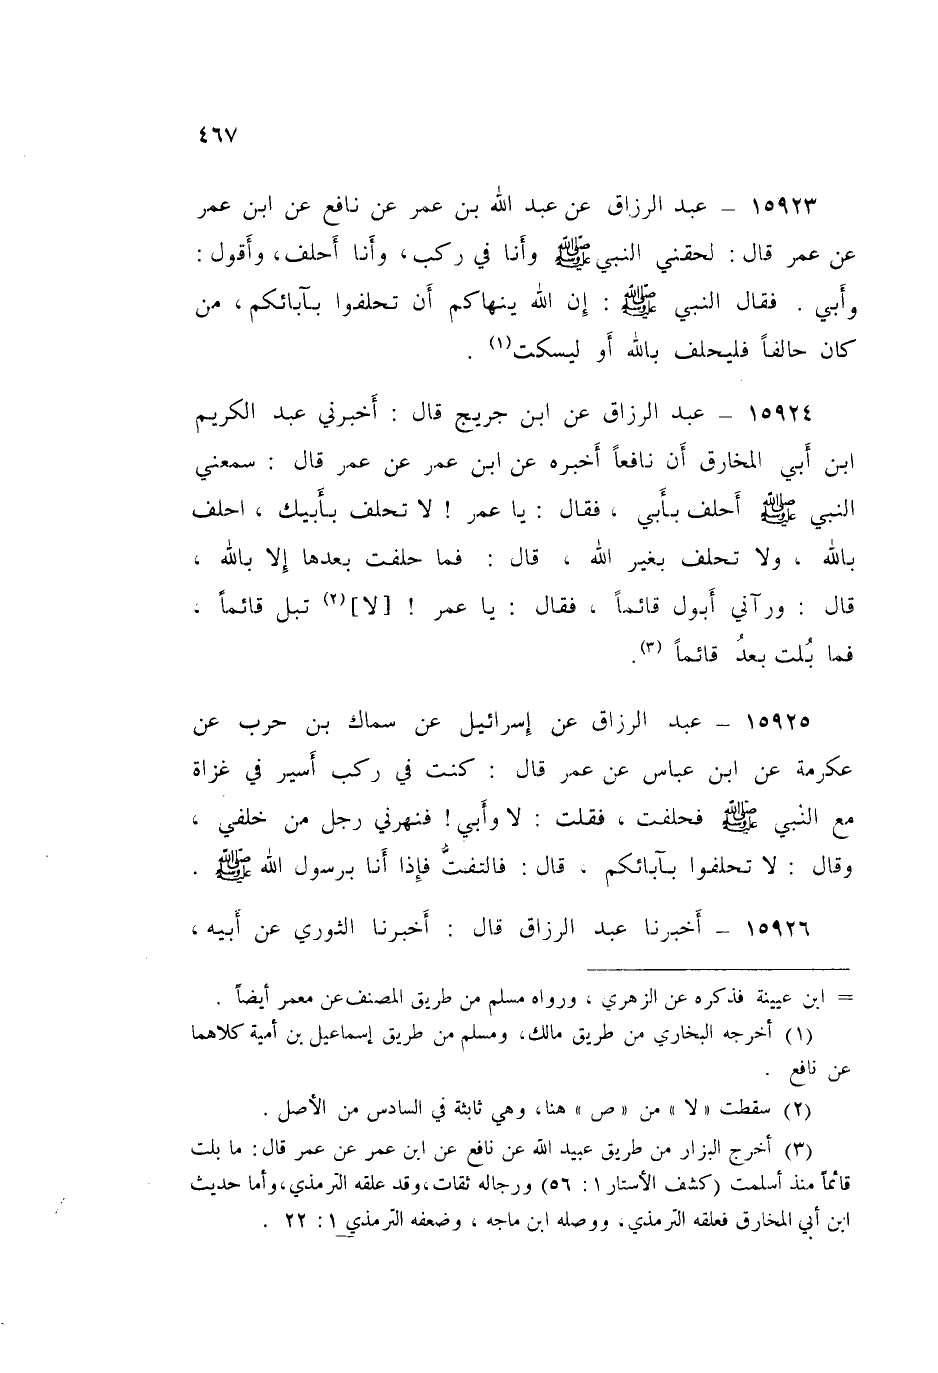 ٤٦٧
١٥٩٢٣ – عبد الرزاق عن عبد الله بن عمر عن نافع عن ابن عمر
عن عمر قال : لحقني النبي ﷺ وأنا في ركب، وأنا أحلف، وأقول :
وأبي . فقال النبي ﷺ : إن الله ينهاكم أن تحلفوا بآبائكم ، من
كان حالفاً فليحلف بالله أو ليسكت(١) .
١٥٩٢٤ – عبد الرزاق عن ابن جريج قال : أخبرني عبد الكريم
ابن أبي المخارق أن نافعاً أخبره عن ابن عمر عن عمر قال : سمعني
النبي ﷺ أحلف بأبي ، فقال : يا عمر ! لا تحلف بأبيك ، احلف
بالله ، ولا تحلف بغير الله ، قال : فما حلفت بعدها إلا بالله ،
قال : ورآني أبول قائماً ، فقال : يا عمر ! [لا](٢) تبل قائماً ،
فما بُلت بعدُ قائماً (٣).
١٥٩٢٥ – عبد الرزاق عن إسرائيل عن سماك بن حرب عن
عكرمة عن ابن عباس عن عمر قال : كنت في ركب أسير في غزاة
مع النبي ﷺ فحلفت ، فقلت : لا وأبي ! فنهرني رجل من خلفي ،
وقال : لا تحلفوا بآبائكم ، قال : فالتفتُّ فإذا أنا برسول الله ﷺ .
١٥٩٢٦ – أخبرنا عبد الرزاق قال : أخبرنا الثوري عن أبيه ،
= ابن عيينة فذكره عن الزهري ، ورواه مسلم من طريق المصنف عن معمر أيضاً .
(١) أخرجه البخاري من طريق مالك، ومسلم من طريق إسماعيل بن أمية كلاهما
عن نافع .
(٢) سقطت « لا » من « ص » هنا، وهي ثابثة في السادس من الأصل .
(٣) أخرج البزار من طريق عبيد الله عن نافع عن ابن عمر عن عمر قال: ما بلت
قائماً منذ أسلمت (كشف الأستار ١ : ٥٦) ورجاله ثقات، وقد علقه الترمذي، وأما حديث
ابن أبي المخارق فعلقه الترمذي، ووصله ابن ماجه ، وضعفه الترمذي ١ : ٢٢ .